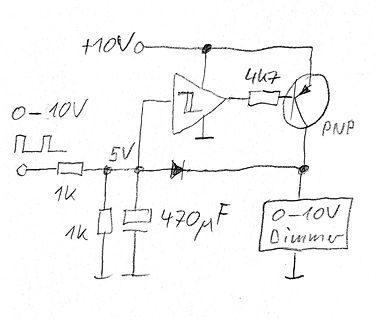 +10V
4k7
0-10V
PNP
5V
1k
1k
470µF
0-10V
Dimmer